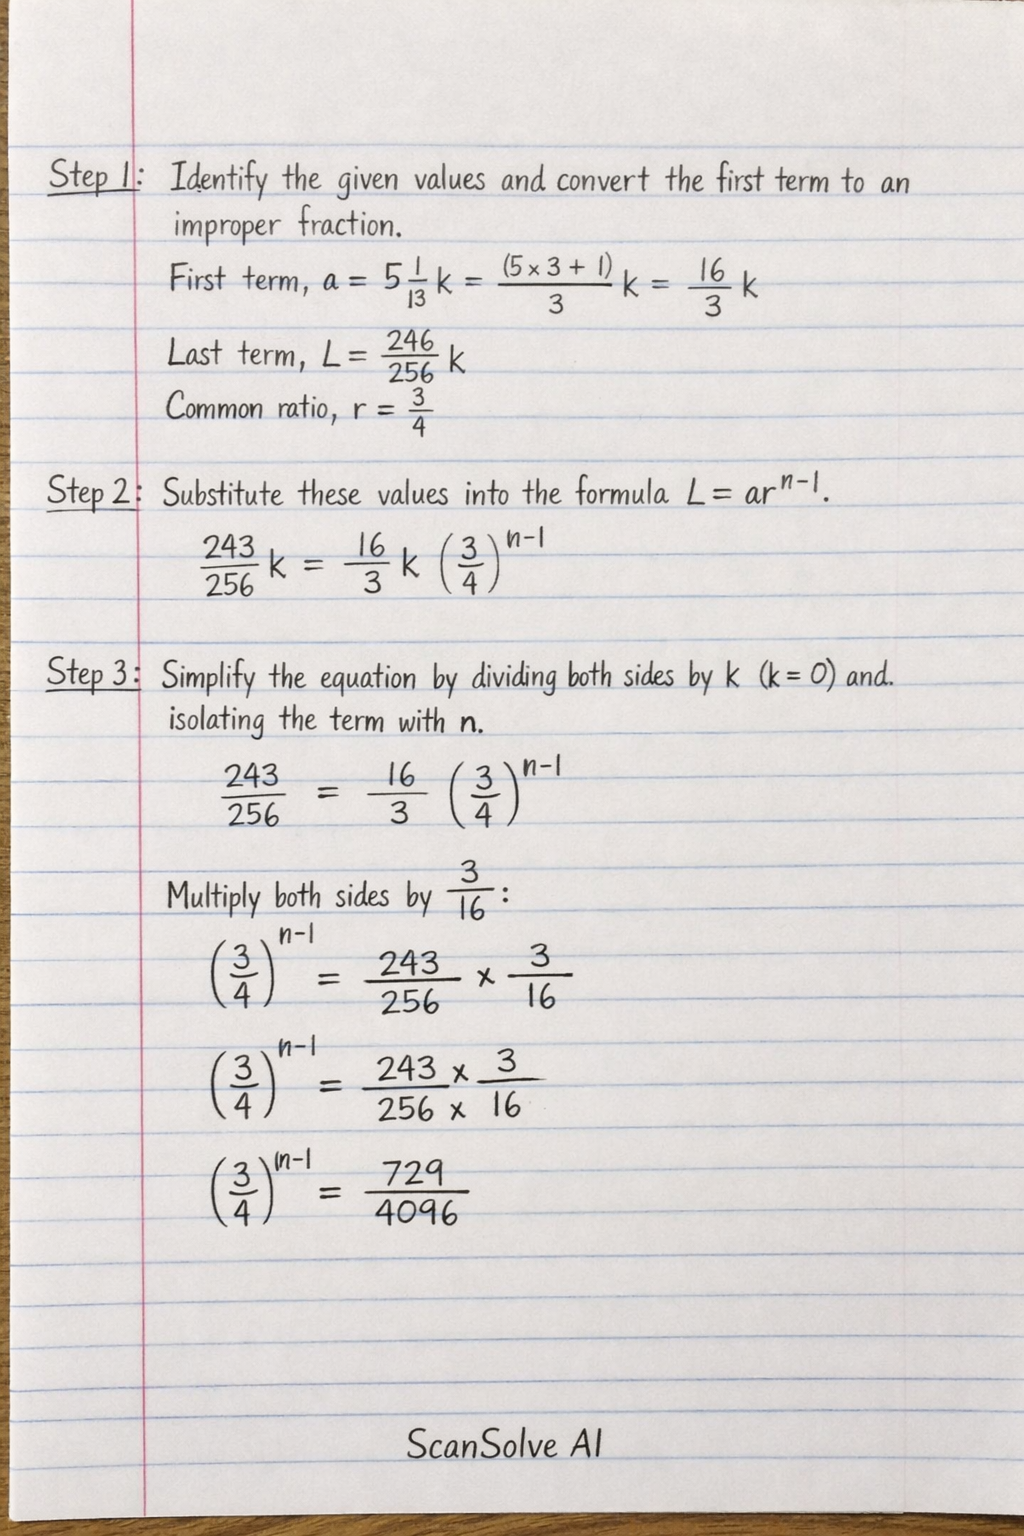 Step 1: Identify the given values and convert the first term to an
improper fraction.
First term, a = 5 1/13 k = (5 × 3 + 1)/3 k = 16/3 k
Last term, L = 246/256 k
Common ratio, r = 3/4
Step 2: Substitute these values into the formula L = ar^(n-1).
243/256 k = 16/3 k (3/4)^(n-1)
Step 3: Simplify the equation by dividing both sides by k (k = 0) and.
isolating the term with n.
243/256 = 16/3 (3/4)^(n-1)
Multiply both sides by 3/16 :
(3/4)^(n-1) = 243/256 × 3/16
(3/4)^(n-1) = 243 × 3 / 256 × 16
(3/4)^(n-1) = 729/4096
ScanSolve AI